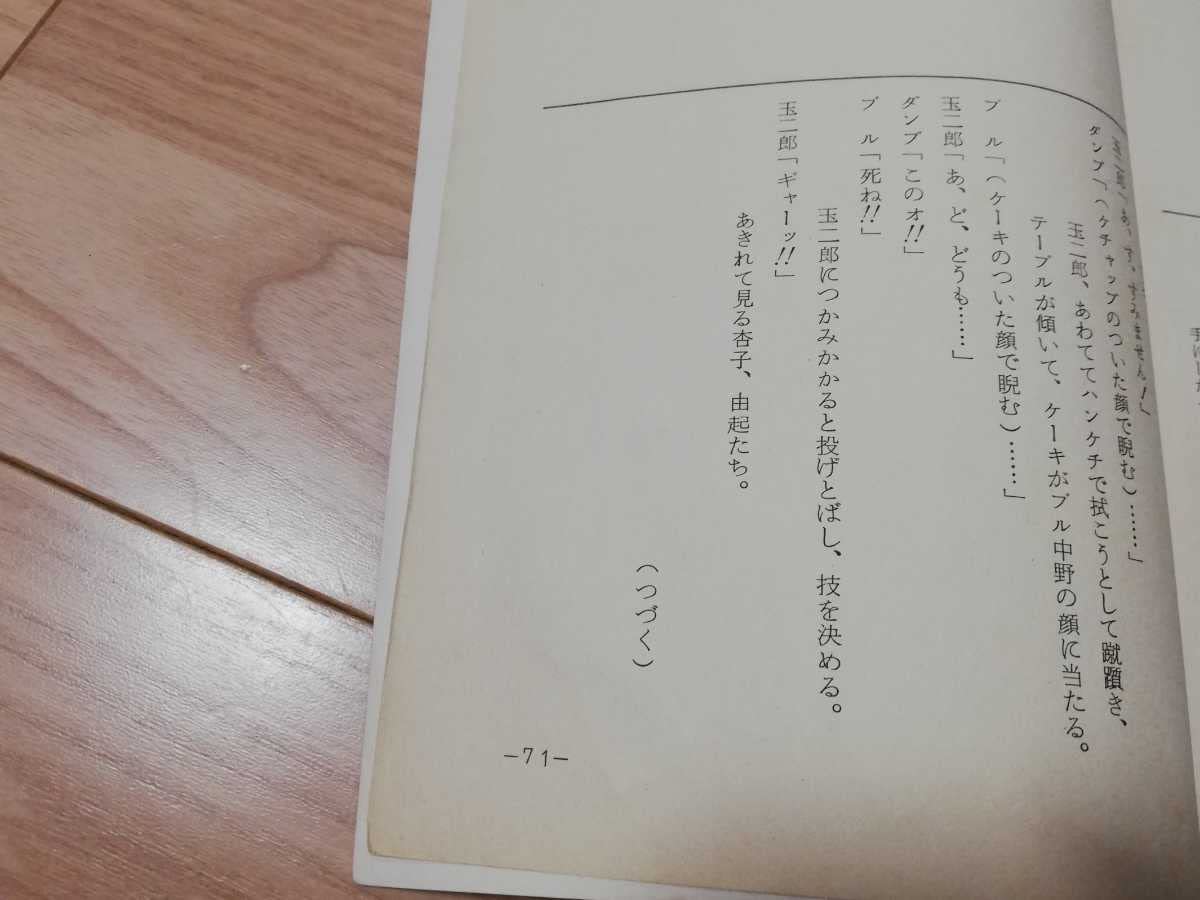 玉二郎「あ、す、すみません！」
ダンプ「（ケチャップのついた顔で睨む）……」
玉二郎、あわててハンケチで拭こうとして蹴躓き、
テーブルが傾いて、ケーキがブル中野の顔に当たる。
ブ ル「（ケーキのついた顔で睨む）……」
玉二郎「あ、ど、どうも……」
ダンプ「このォ!!」
ブ ル「死ね!!」
玉二郎につかみかかると投げとばし、技を決める。
玉二郎「ギャーッ!!」
あきれて見る杏子、由起たち。
（つづく）
—71—